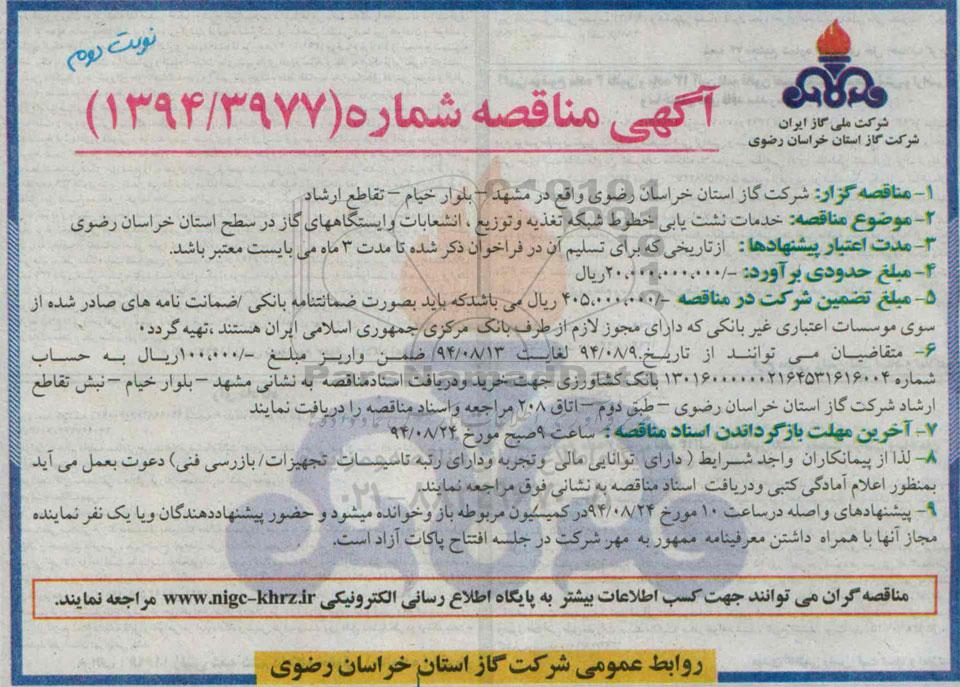 نوبت دوم
شرکت ملی گاز ایران
شرکت گاز استان خراسان رضوی
آگهی مناقصه شماره(۱۳۹۴/۳۹۷۷)
۱- مناقصه گزار: شرکت گاز استان خراسان رضوی واقع در مشهد – بلوار خیام – تقاطع ارشاد
۲- موضوع مناقصه: خدمات نشت یابی خطوط شبکه تغذیه وتوزیع ، انشعابات وایستگاههای گاز در سطح استان خراسان رضوی
۳- مدت اعتبار پیشنهادها : ازتاریخی که برای تسلیم آن در فراخوان ذکر شده تا مدت ۳ ماه می بایست معتبر باشد.
۴- مبلغ حدودی برآورد: -/۲۰,۰۰۱,۰۰۰,۰۰۰ریال
۵- مبلغ تضمین شرکت در مناقصه -/۴۰۵,۰۰۰,۰۰۰ ریال می باشدکه باید بصورت ضمانتنامه بانکی /ضمانت نامه های صادر شده از
سوی موسسات اعتباری غیر بانکی که دارای مجوز لازم از طرف بانک مرکزی جمهوری اسلامی ایران هستند ،تهیه گردد.
۶- متقاضیان می توانند از تاریخ ۹۴/۰۸/۹ لغایت ۹۴/۰۸/۱۳ ضمن واریز مبلغ -/۱۰۰,۰۰۰ریال به حساب
شماره ۱۳۰۱۶۰۰۰۰۰۰۲۱۶۴۵۳۱۶۱۶۰۰۴ بانک کشاورزی جهت خرید ودریافت اسنادمناقصه به نشانی مشهد – بلوار خیام – نبش تقاطع
ارشاد شرکت گاز استان خراسان رضوی – طبق دوم – اتاق ۲۰۸ مراجعه واسناد مناقصه را دریافت نمایند
۷- آخرین مهلت بازگرداندن اسناد مناقصه : ساعت ۹صبح مورخ ۹۴/۰۸/۲۴
۸- لذا از پیمانکاران واجد شرایط ( دارای توانایی مالی وتجربه ودارای رتبه تاسیسات، تجهیزات/ بازرسی فنی) دعوت بعمل می آید
بمنظور اعلام آمادگی کتبی ودریافت اسناد مناقصه به نشانی فوق مراجعه نمایند.
۹- پیشنهادهای واصله درساعت ۱۰ مورخ ۹۴/۰۸/۲۴در کمیسیون مربوطه باز وخوانده میشود و حضور پیشنهاددهندگان ویا یک نفر نماینده
مجاز آنها با همراه داشتن معرفینامه ممهور به مهر شرکت در جلسه افتتاح پاکات آزاد است.
مناقصه گران می توانند جهت کسب اطلاعات بیشتر به پایگاه اطلاع رسانی الکترونیکی www.nigc-khrz.ir مراجعه نمایند.
روابط عمومی شرکت گاز استان خراسان رضوی